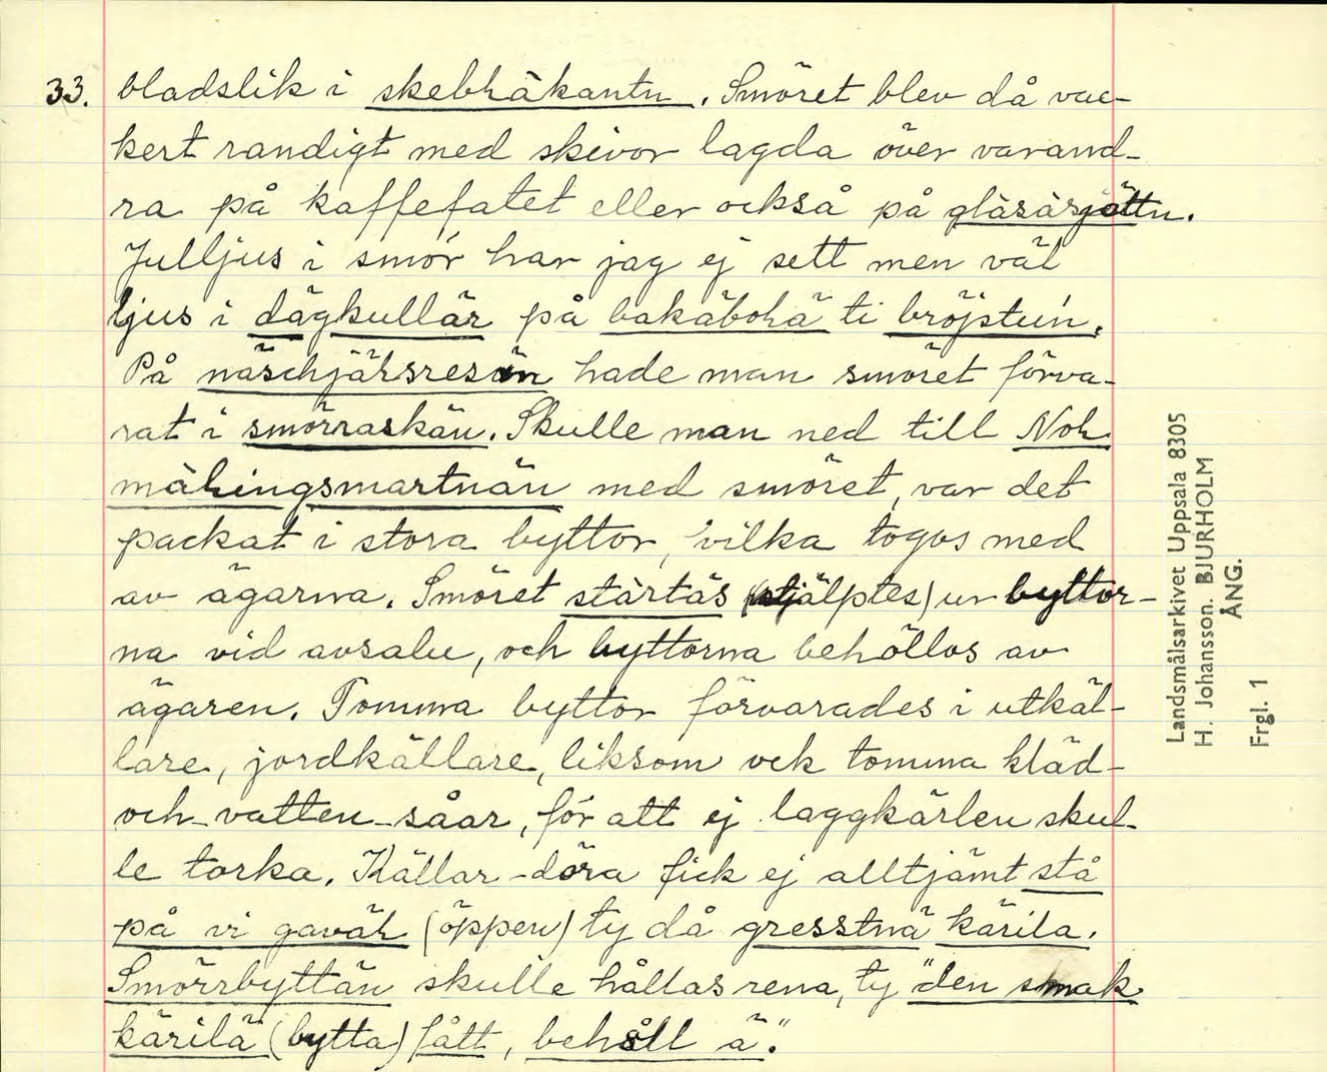 33. bladslik i skebhäkantn. Smöret blev då vac-
kert randigt med skivor lagda över varand-
ra på kaffefatet eller också på gläsäsjättn.
Julljus i smör har jag ej sett men väl
ljus i dägkullär på bakäbohä ti bröjstein.
På näschjähsresän hade man smöret förva-
rat i smörraskän. Skulle man ned till Noh
mähingsmartnän med smöret, var det
packat i stora byttor, vilka togos med
av ägarna. Smöret stärtäs (stjälptes) ur byttor-
na vid avsalu, och byttorna behöllos av
ägaren. Tomma byttor förvarades i utkäl-
lare, jordkällare, liksom ock tomma kläd-
och-vatten-såar, för att ej laggkärlen skul-
le torka. Källar-döra fick ej alltjämt stå
på vi gaväh (öppen) ty då gresstnä kärila.
Smörrbyttän skulle hållas rena, ty "den smak
kärilä (bytta) fått, behåll ä."
Landsmålsarkivet Uppsala 8305
H. Johansson. BJURHOLM
ÅNG.
Frgl. 1